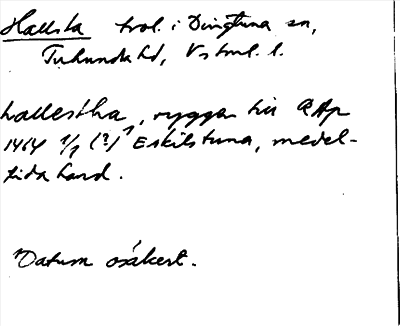 Hallsta trol. i Dingtuna sn,
Tuhunda hd, Vstml. l.
hallestha, ryggen till RAp
1464 1/1 (?) Eskilstuna, medel-
tida hand.
Datum osäkert.